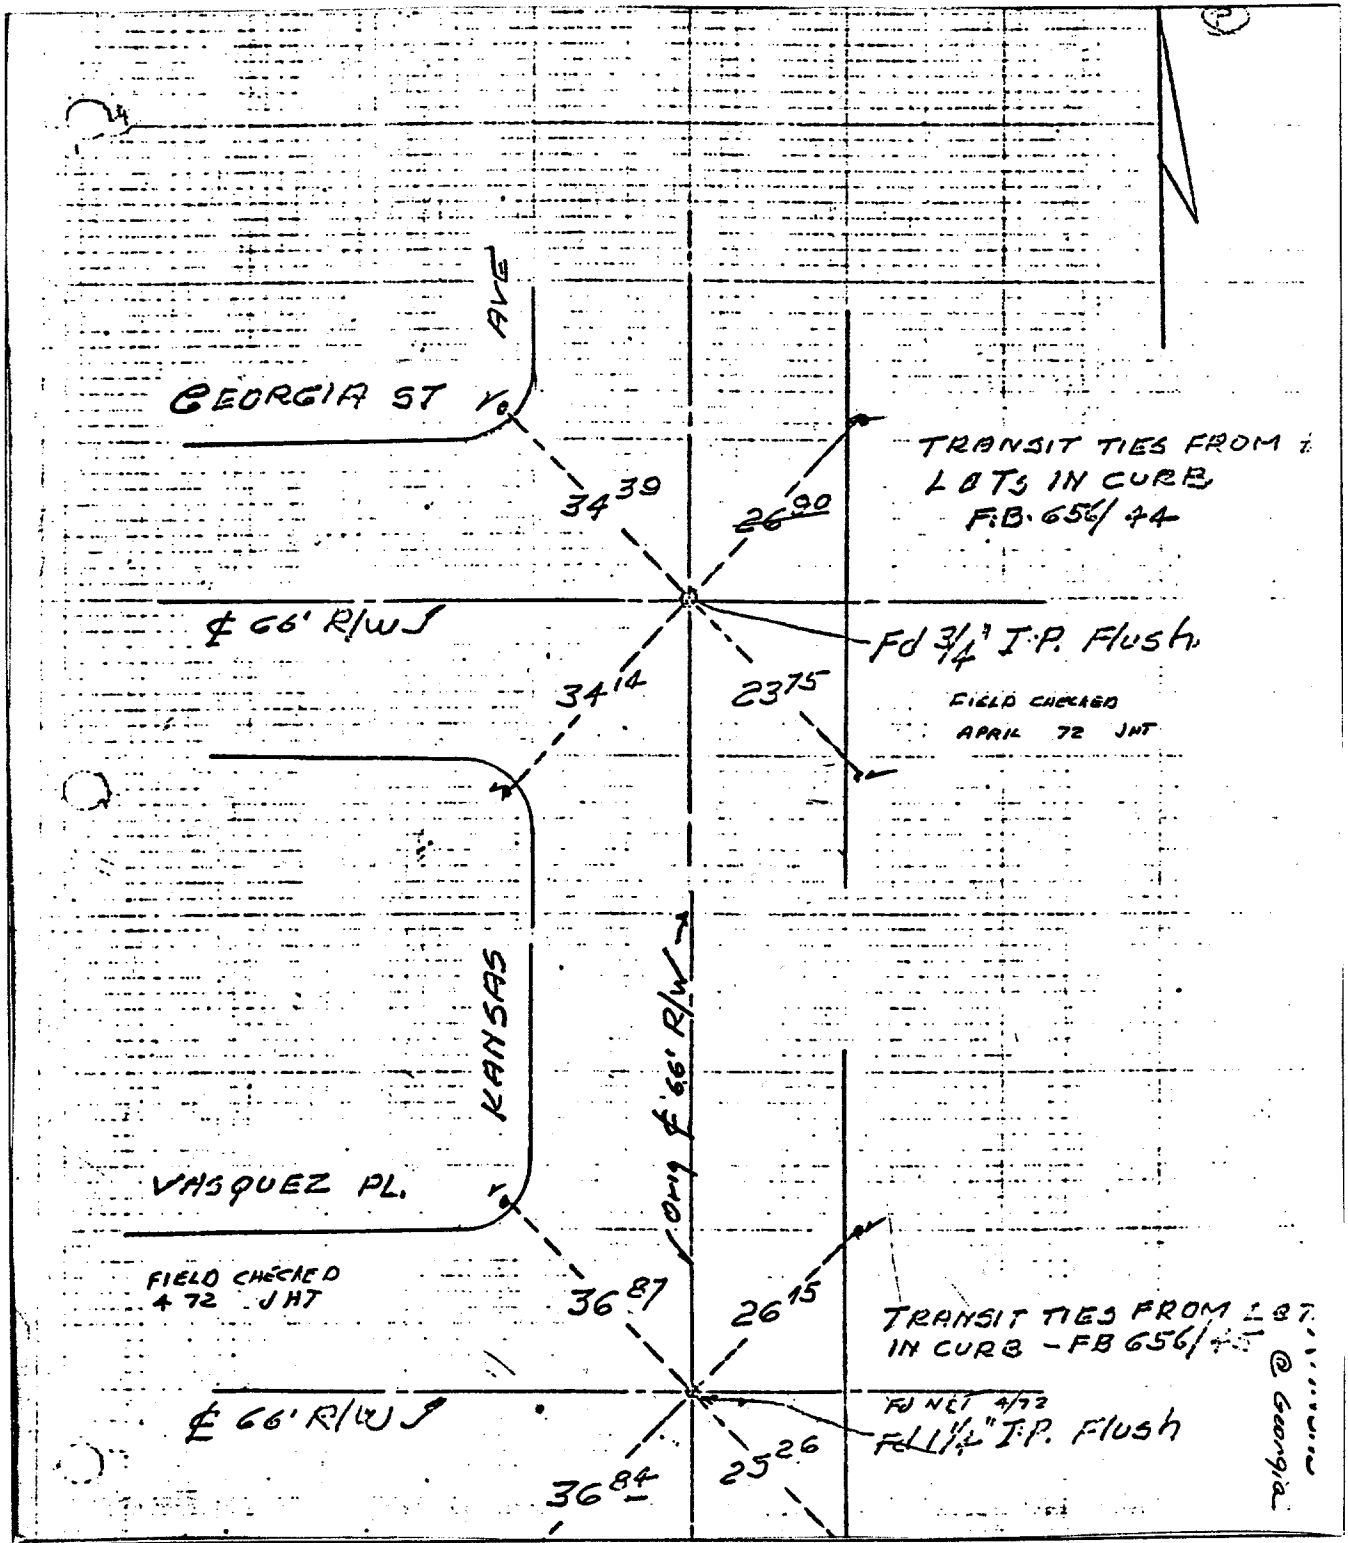 AVE
GEORGIA ST
34 39
26 90
TRANSIT TIES FROM
L&TS IN CURB
F.B. 656/44
℄ 66' R/W
Fd 3/4" I.P. Flush
34 14
23 75
FIELD CHECKED
APRIL 72 JHT
KANSAS
Orig ℄ 66' R/W
VASQUEZ PL.
FIELD CHECKED
4 72 JHT
36 87
26 15
TRANSIT TIES FROM L&T
IN CURB - FB 656/45
@ Georgia
℄ 66' R/W
FD NET 4/72
Fd 1 1/4" I.P. Flush
36 84
25 26